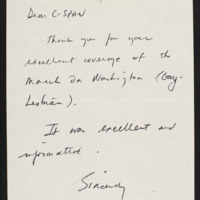 Dear C-SPAN
Thank you for your
excellent coverage of the
March On Washington (Gay-
Lesbian).
It was excellent and
informative.
Sincerely